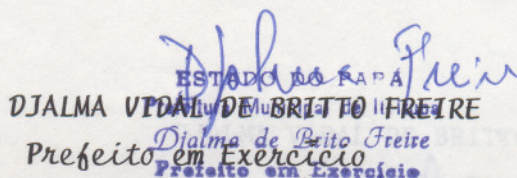 Djalma Freire
ESTADO DO PARÁ
DJALMA VIDAL DE BRITTO FREIRE
Municipal de
Djalma de Brito Freire
Prefeito em Exercício
Prefeito em Exercício